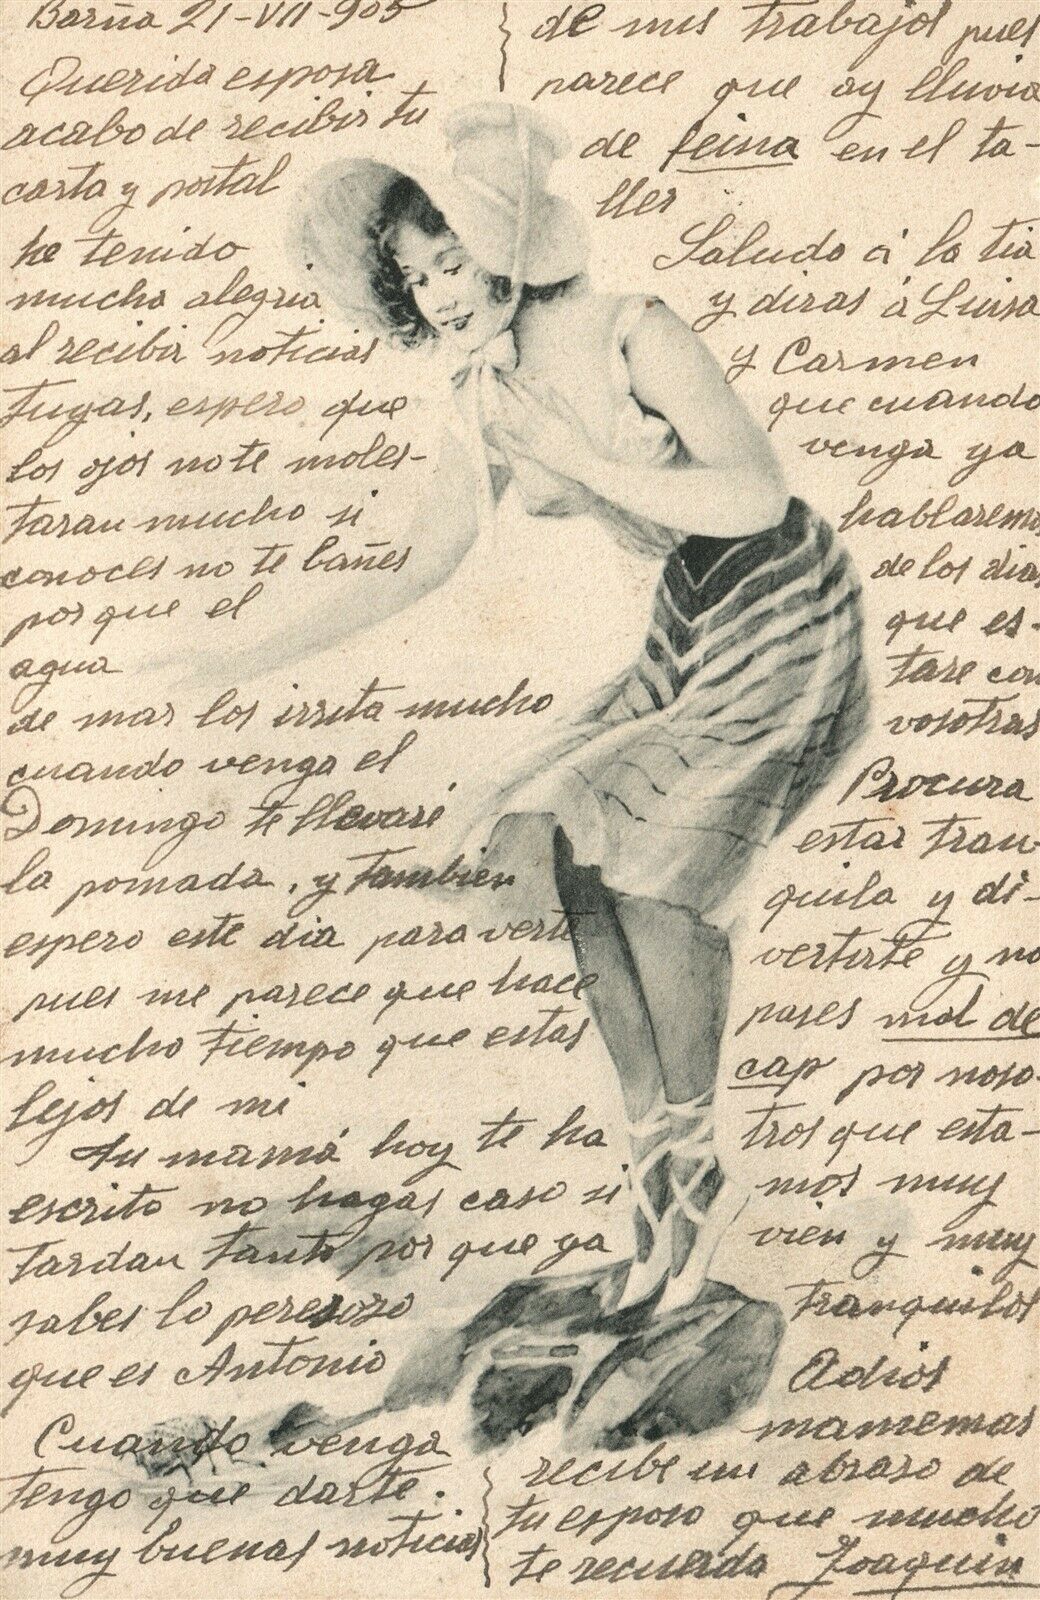 Barña 21-VII-905
Querida esposa
acabo de recibir tu
carta y postal
he tenido
mucha alegria
al recibir noticias
tuyas, espero que
los ojos no te moles-
taran mucho si
conoces no te bañes
por que el
agua
de mar los irrita mucho
cuando venga el
Domingo te llevaré
la pomada, y tambien
espero este dia para verte
pues me parece que hace
mucho tiempo que estas
lejos de mi
Tu mamá hoy te ha
escrito no hagas caso si
tardan tanto por que ya
sabes lo peresoso
que es Antonio
Cuando venga
tengo que darte
muy buenas noticias
de mis trabajos pues
parece que ay lluvia
de feina en el ta-
ller
Saludo á la tia
y diras á Luisa
y Carmen
que cuando
venga ya
hablaremos
de los dias
que es-
tare con
vosotras
Procura
estar tran-
quila y di-
vertirte y no
pases mal de
cap por noso-
tros que esta-
mos muy
vien y muy
tranquilos
Adios
mamemas
recibe un abraso de
tu esposo que mucho
te recuerda Joaquin